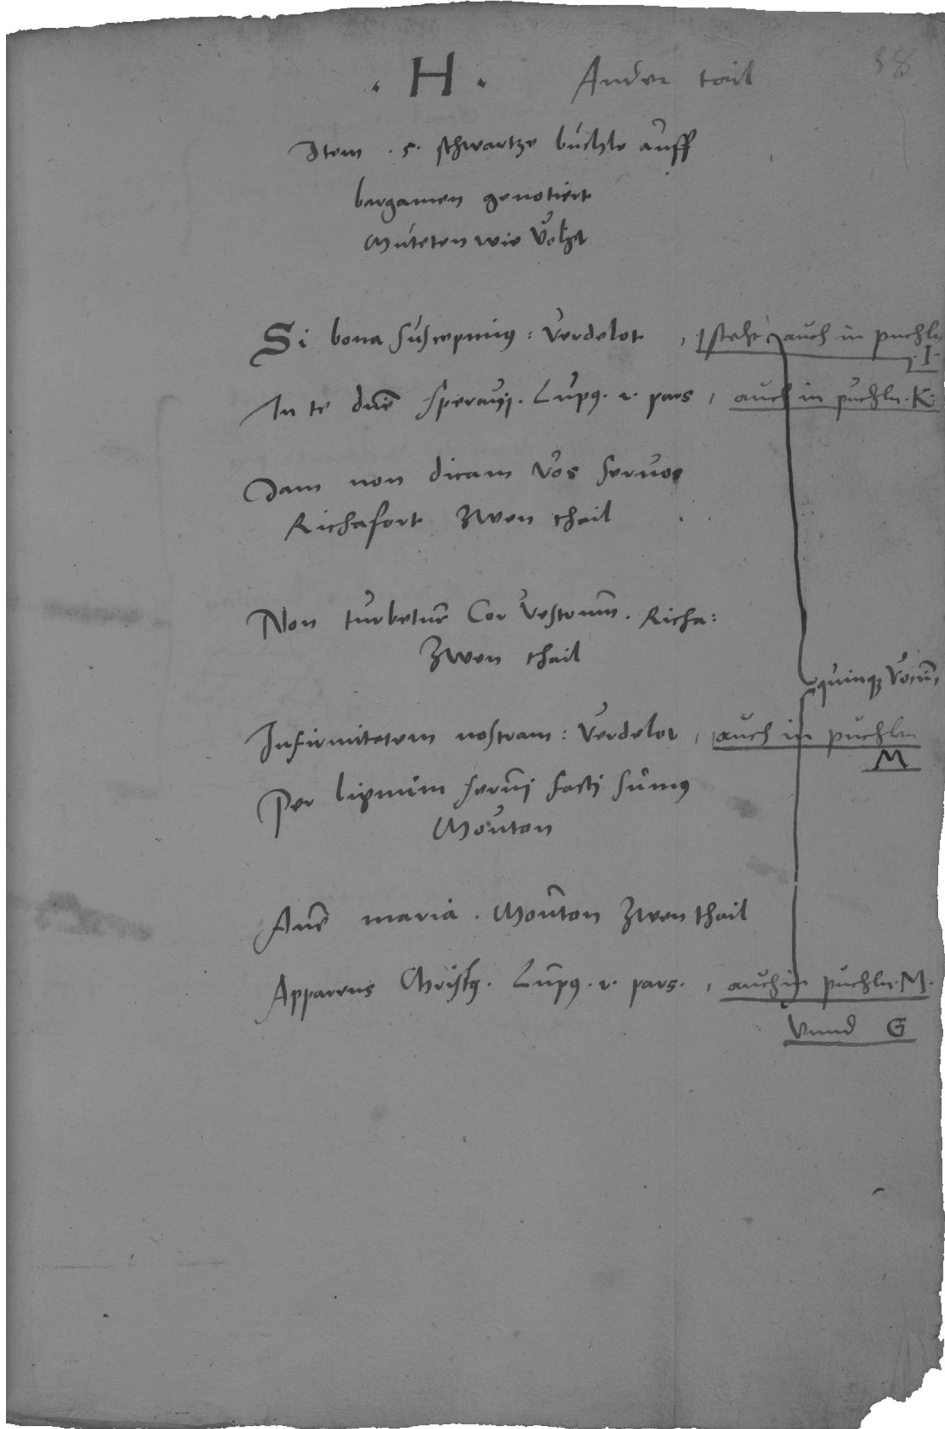 · H · Ander tail
38
Item . 5 . schwartze büchle aúff
bergamen genotiert
Múteten wie Volgt
Si bona súscepimus : Verdelot , steht auch in puchln
I
In te dnē speravi . Lúpus . 2 . pars , auch in púchln . K .
Iam non dicam Vos servos
Richafort Zwen thail
Non túrbetur Cor Vestrum . Richa :
Zwen thail
quinqz Vocū
Infirmitatem nostram : Verdelot , auch in púchln
M
Per lignúm servi facti súmus
Moúton
Aue maria . Moúton Zwen thail
Apparens Christus . Lúpus . 2 . pars . , auch in púchln . M .
Vnnd G